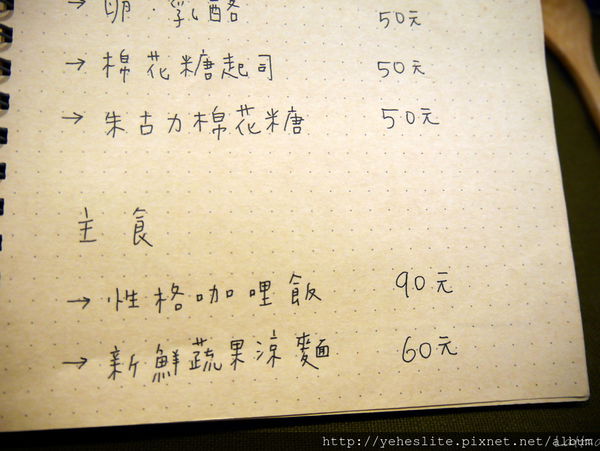 → 卵・乳酪 50元
→ 棉花糖起司 50元
→ 朱古力棉花糖 50元
主食
→ 性格咖哩飯 90元
→ 新鮮蔬果涼麵 60元
http://yeheslite.pixnet.net/album